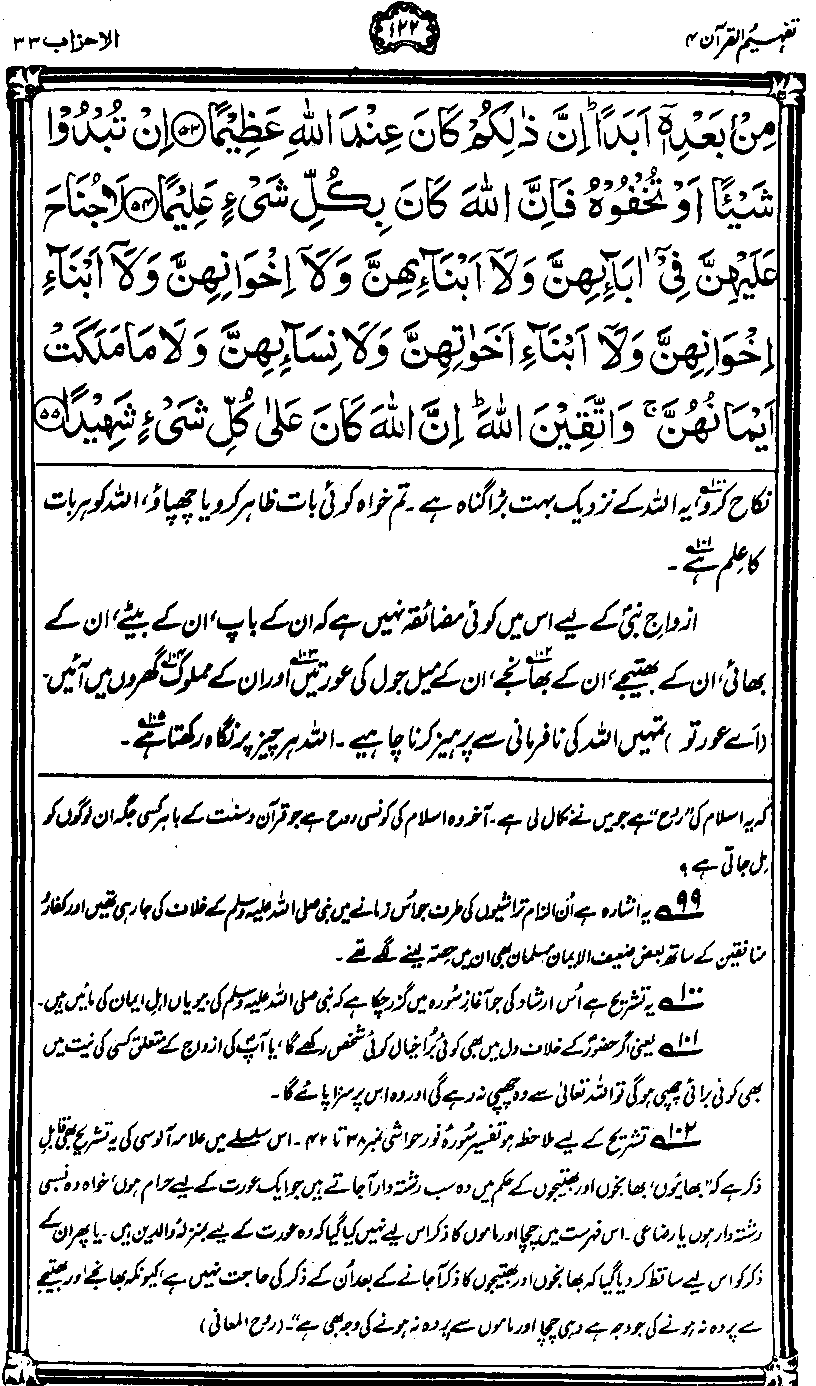 تفہیم القرآن ۴
۱۲۲
الاحزاب ۳۳
مِنْۢ بَعْدِهٖۤ اَبَدًا ؕ اِنَّ ذٰلِكُمْ كَانَ عِنْدَ اللّٰهِ عَظِیْمًا ﴿۵۳﴾ اِنْ تُبْدُوْا
شَیْـًٔا اَوْ تُخْفُوْهُ فَاِنَّ اللّٰهَ كَانَ بِكُلِّ شَیْءٍ عَلِیْمًا ﴿۵۴﴾ لَا جُنَاحَ
عَلَیْهِنَّ فِیْۤ اٰبَآىِٕهِنَّ وَلَاۤ اَبْنَآىِٕهِنَّ وَلَاۤ اِخْوَانِهِنَّ وَلَاۤ اَبْنَآءِ
اِخْوَانِهِنَّ وَلَاۤ اَبْنَآءِ اَخَوٰتِهِنَّ وَلَا نِسَآىِٕهِنَّ وَلَا مَا مَلَكَتْ
اَیْمَانُهُنَّ ۚ وَاتَّقِیْنَ اللّٰهَ ؕ اِنَّ اللّٰهَ كَانَ عَلٰی كُلِّ شَیْءٍ شَهِیْدًا ﴿۵۵﴾
نکاح کرو،۱۰۰ یہ اللہ کے نزدیک بہت بڑا گناہ ہے۔ تم خواہ کوئی بات ظاہر کرو یا چھپاؤ، اللہ کو ہر بات
کا علم ہے۱۰۱۔
ازواجِ نبیؐ کے لیے اس میں کوئی مضائقہ نہیں ہے کہ ان کے باپ، ان کے بیٹے، ان کے
بھائی، ان کے بھتیجے، ان کے بھانجے،۱۰۲ ان کے میل جول کی عورتیں۱۰۳ اور ان کے مملوک۱۰۴ گھروں میں آئیں۔
(اے عورتو) تمہیں اللہ کی نافرمانی سے پرہیز کرنا چاہیے۔ اللہ ہر چیز پر نگاہ رکھتا ہے۱۰۵۔
کہ یہ اسلام کی ”روح“ ہے جو میں نے نکال لی ہے۔ آخر وہ اسلام کی کونسی روح ہے جو قرآن و سنت کے باہر کسی جگہ ان لوگوں کو
مل جاتی ہے؟
۹۹ یہ اشارہ ہے اُن الزام تراشیوں کی طرف جو اُس زمانے میں نبی صلی اللہ علیہ وسلم کے خلاف کی جا رہی تھیں اور کفار و
منافقین کے ساتھ بعض ضعیف الایمان مسلمان بھی ان میں حصہ لینے لگے تھے۔
۱۰۰ یہ تشریح ہے اُس ارشاد کی جو آغازِ سورہ میں گزر چکا ہے کہ نبی صلی اللہ علیہ وسلم کی بیویاں اہلِ ایمان کی مائیں ہیں۔
۱۰۱ یعنی اگر حضورؐ کے خلاف دل میں بھی کوئی بُرا خیال کوئی شخص رکھے گا، یا آپؐ کی ازواج کے متعلق کسی کی نیت میں
بھی کوئی برائی چھپی ہوگی تو اللہ تعالیٰ سے وہ چھپی نہ رہے گی اور وہ اس پر سزا پائے گا۔
۱۰۲ تشریح کے لیے ملاحظہ ہو تفسیر سورۂ نور حواشی نمبر ۳۸ تا ۴۲۔ اس سلسلے میں علامہ آلوسی کی یہ تشریح بھی قابلِ
ذکر ہے کہ ”بھائیوں، بھانجوں اور بھتیجوں کے حکم میں وہ سب رشتہ دار آ جاتے ہیں جو ایک عورت کے لیے حرام ہوں، خواہ وہ نسبی
رشتہ دار ہوں یا رضاعی۔ اس فہرست میں چچا اور ماموں کا ذکر اس لیے نہیں کیا گیا کہ وہ عورت کے لیے بمنزلۂ والدین ہیں۔ یا پھر ان کے
ذکر کو اس لیے ساقط کر دیا گیا کہ بھانجوں اور بھتیجوں کا ذکر آ جانے کے بعد اُن کے ذکر کی حاجت نہیں ہے، کیونکہ بھانجے اور بھتیجے
سے پردہ نہ ہونے کی جو وجہ ہے وہی چچا اور ماموں سے پردہ نہ ہونے کی وجہ بھی ہے“۔ (روح المعانی)